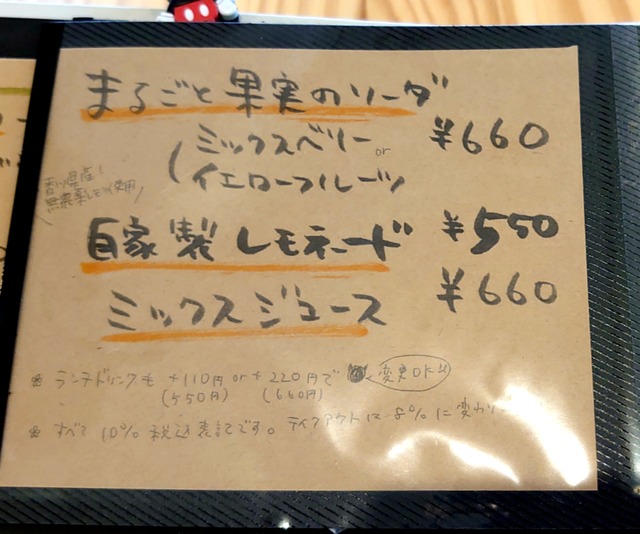 まるごと果実のソーダ
ミックスベリー ¥660
or
イエローフルーツ
香川県産！
無農薬レモン使用
自家製レモネード ¥550
ミックスジュース ¥660
※ ランチドリンクも +110円 or + 220円で 変更OK
(550円) (660円)
※ すべて 10% 税込表記です。テイクアウトは 8% に変わり